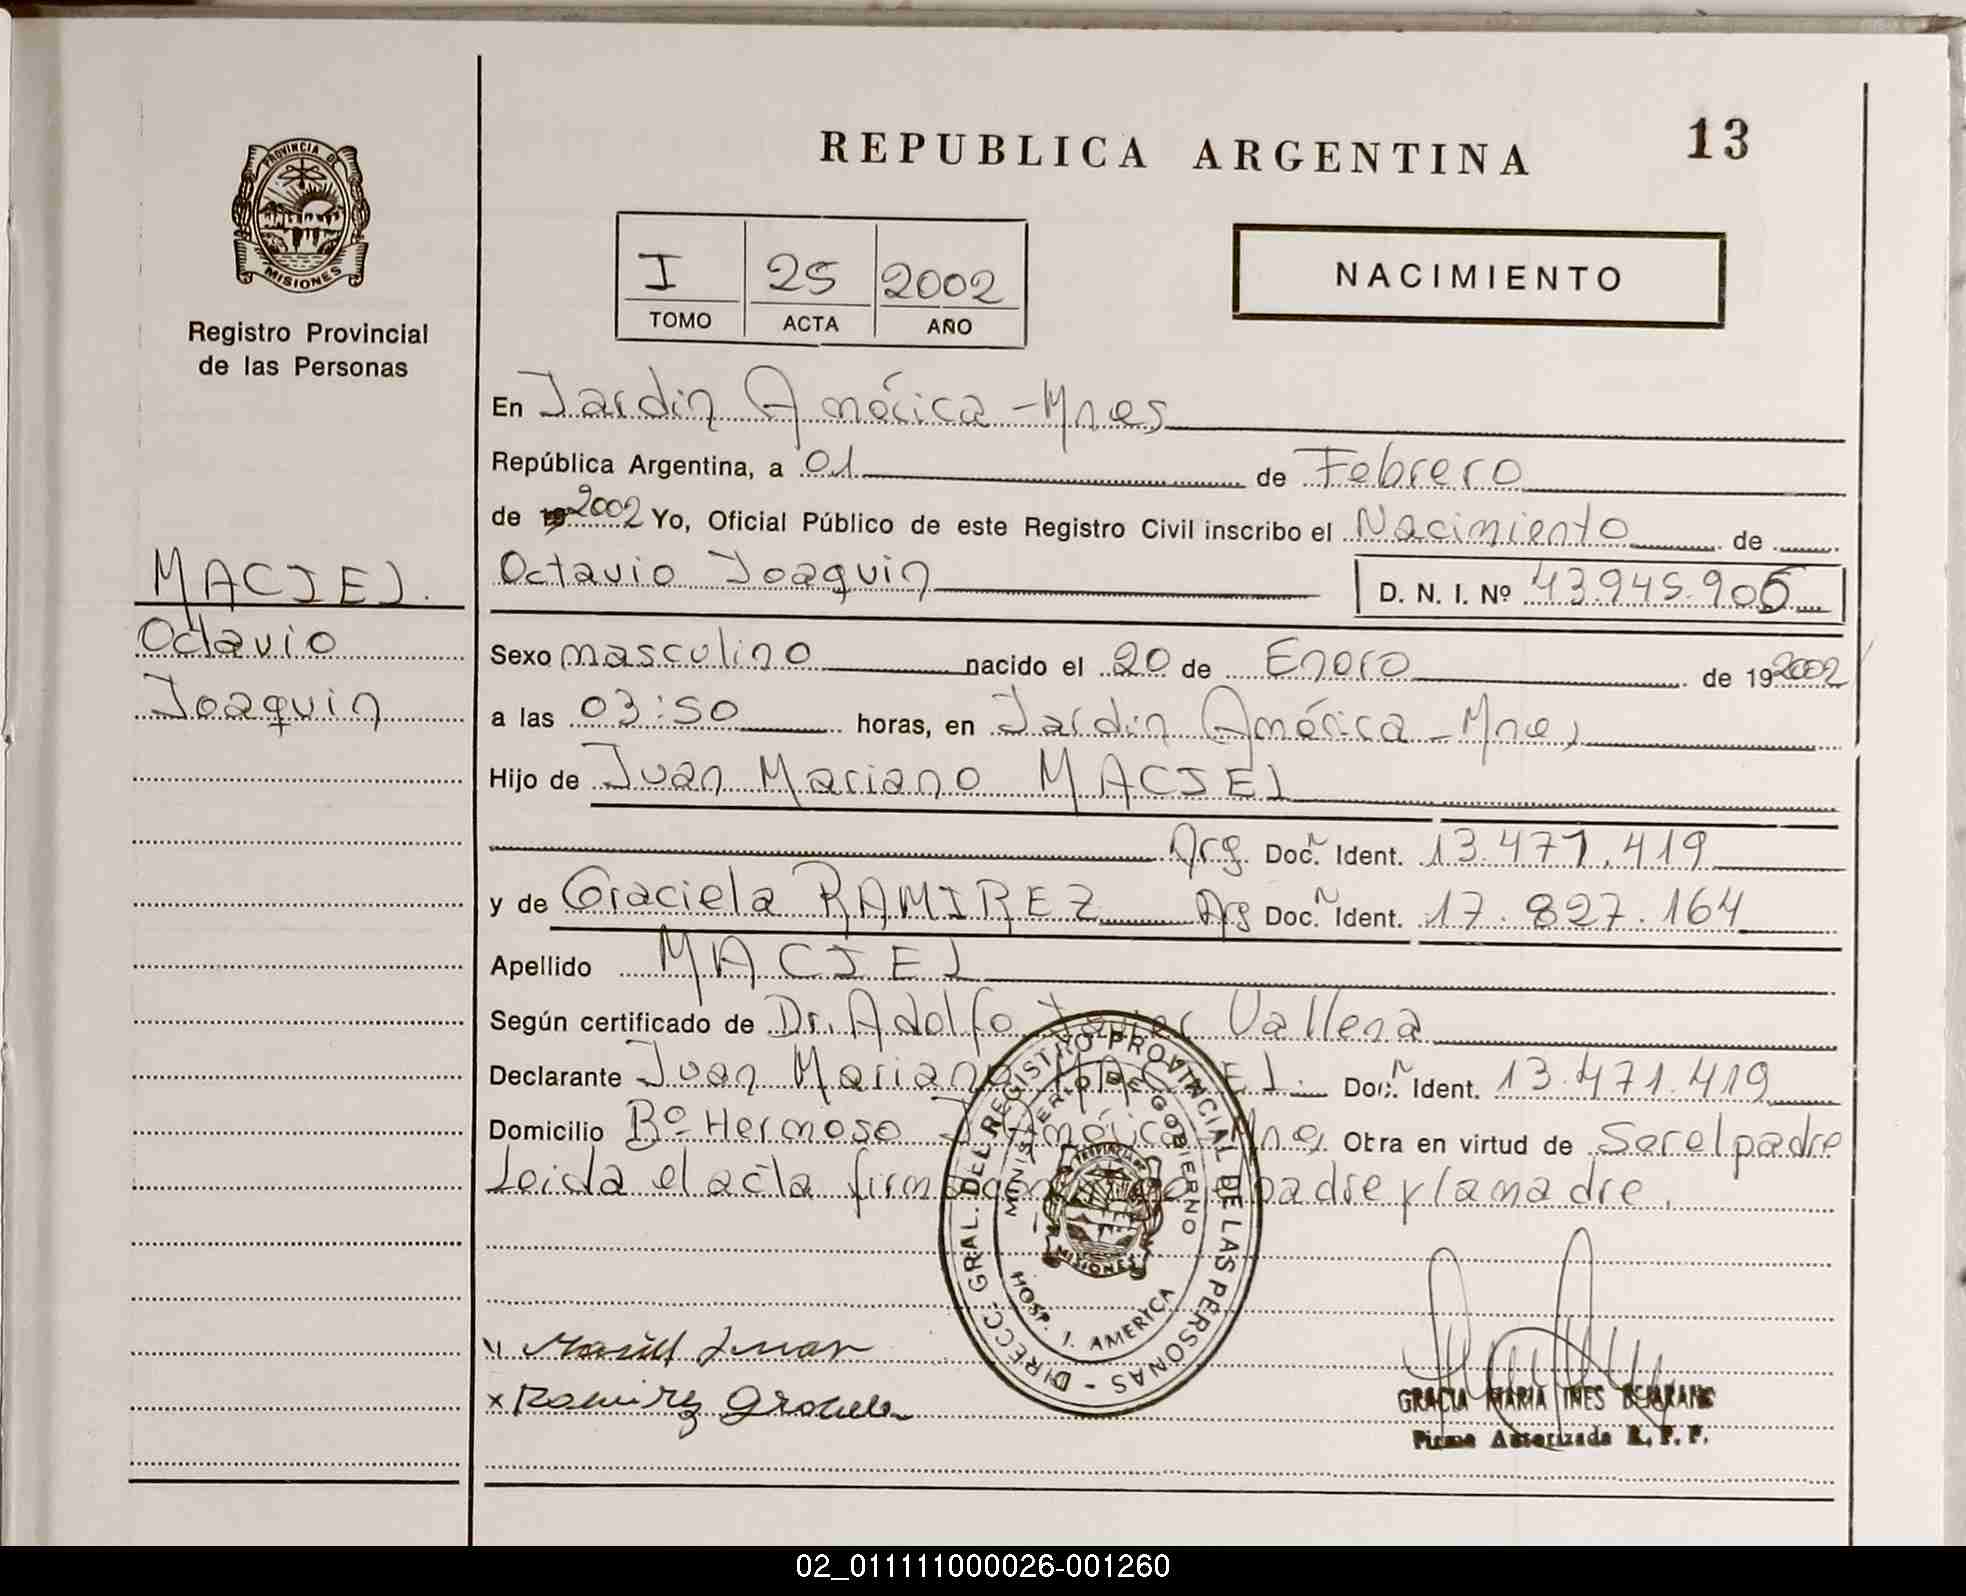 REPUBLICA ARGENTINA
13
PROVINCIA DE
MISIONES
Registro Provincial
de las Personas
I 25 2002
TOMO ACTA AÑO
NACIMIENTO
En Jardin América - Mnes
República Argentina, a 01 de Febrero
de 19 2002 Yo, Oficial Público de este Registro Civil inscribo el Nacimiento de
Octavio Joaquin D. N. I. Nº 43.945.905
MACIEL.
Octavio
Joaquin
Sexo masculino nacido el 20 de Enero de 19 2002
a las 03:50 horas, en Jardin América - Mnes
Hijo de Juan Mariano MACIEL
Arg. Doc. Ident. 13.471.419
y de Graciela RAMIREZ Arg Doc. Ident. 17.827.164
Apellido MACIEL
Según certificado de Dr. Adolfo Javier Vallena
Declarante Juan Mariano MACIEL. Doc. Ident. 13.471.419
Domicilio Bº Hermoso J. América Mnes Obra en virtud de Ser el padre
Leida el acta firman el padre y la madre.
DIRECC. GRAL. DEL REGISTRO PROVINCIAL DE LAS PERSONAS -
MINISTERIO DE GOBIERNO
PROVINCIA DE
MISIONES
HOSP. J. AMERICA
Maciel Juan
x Ramirez Graciela
GRACIA MARIA INES BEJARANO
Firma Autorizada R. P. P.
02_011111000026-001260